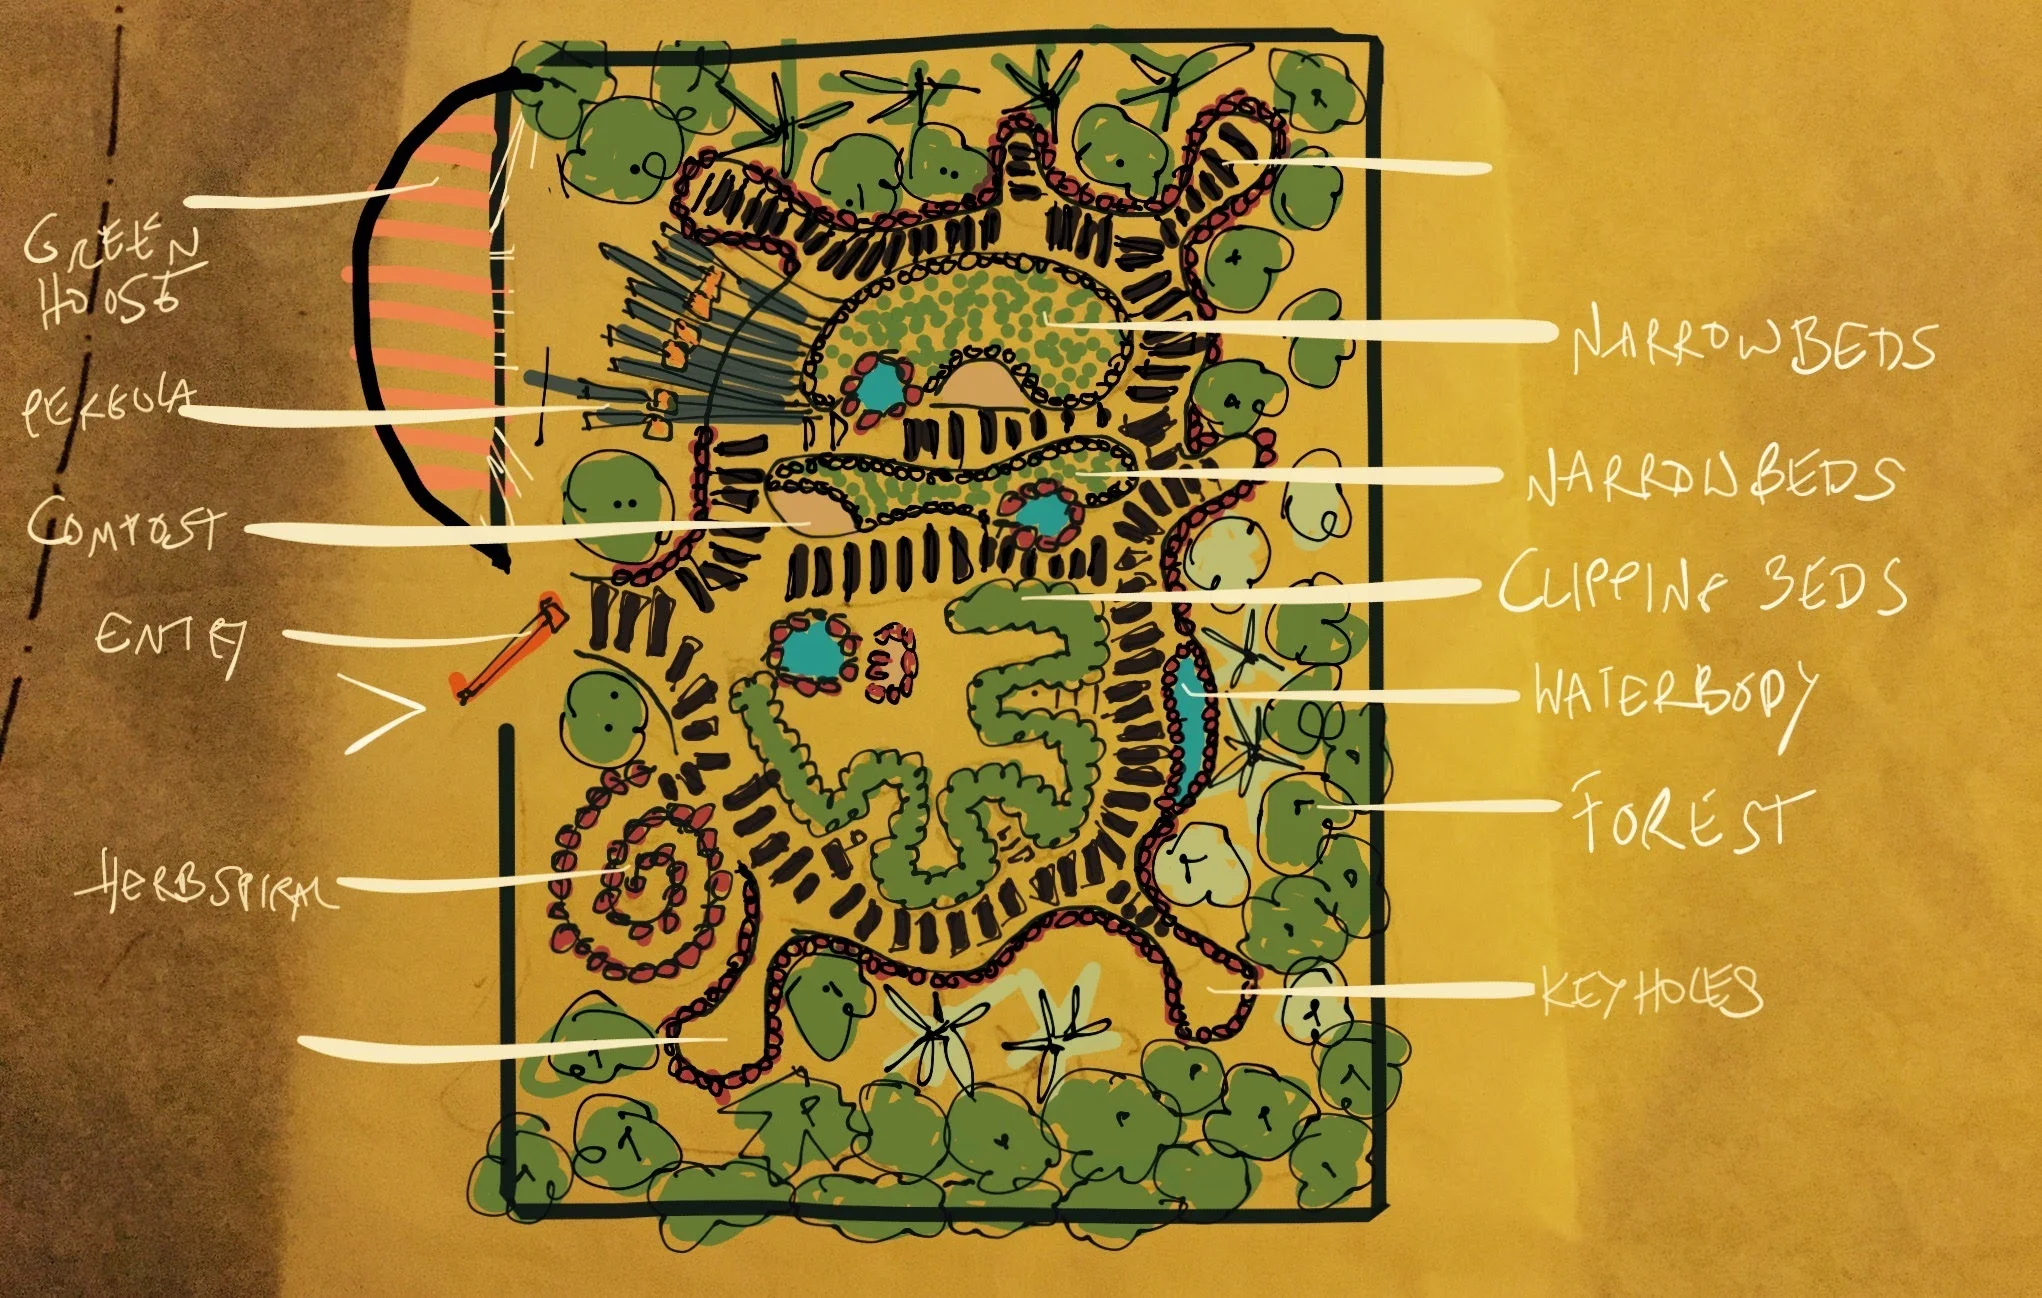 GREEN
HOUSE
PERGOLA
COMPOST
ENTRY
HERBSPIRAL
NARROWBEDS
NARROWBEDS
CLIPPING BEDS
WATERBODY
FOREST
KEYHOLES